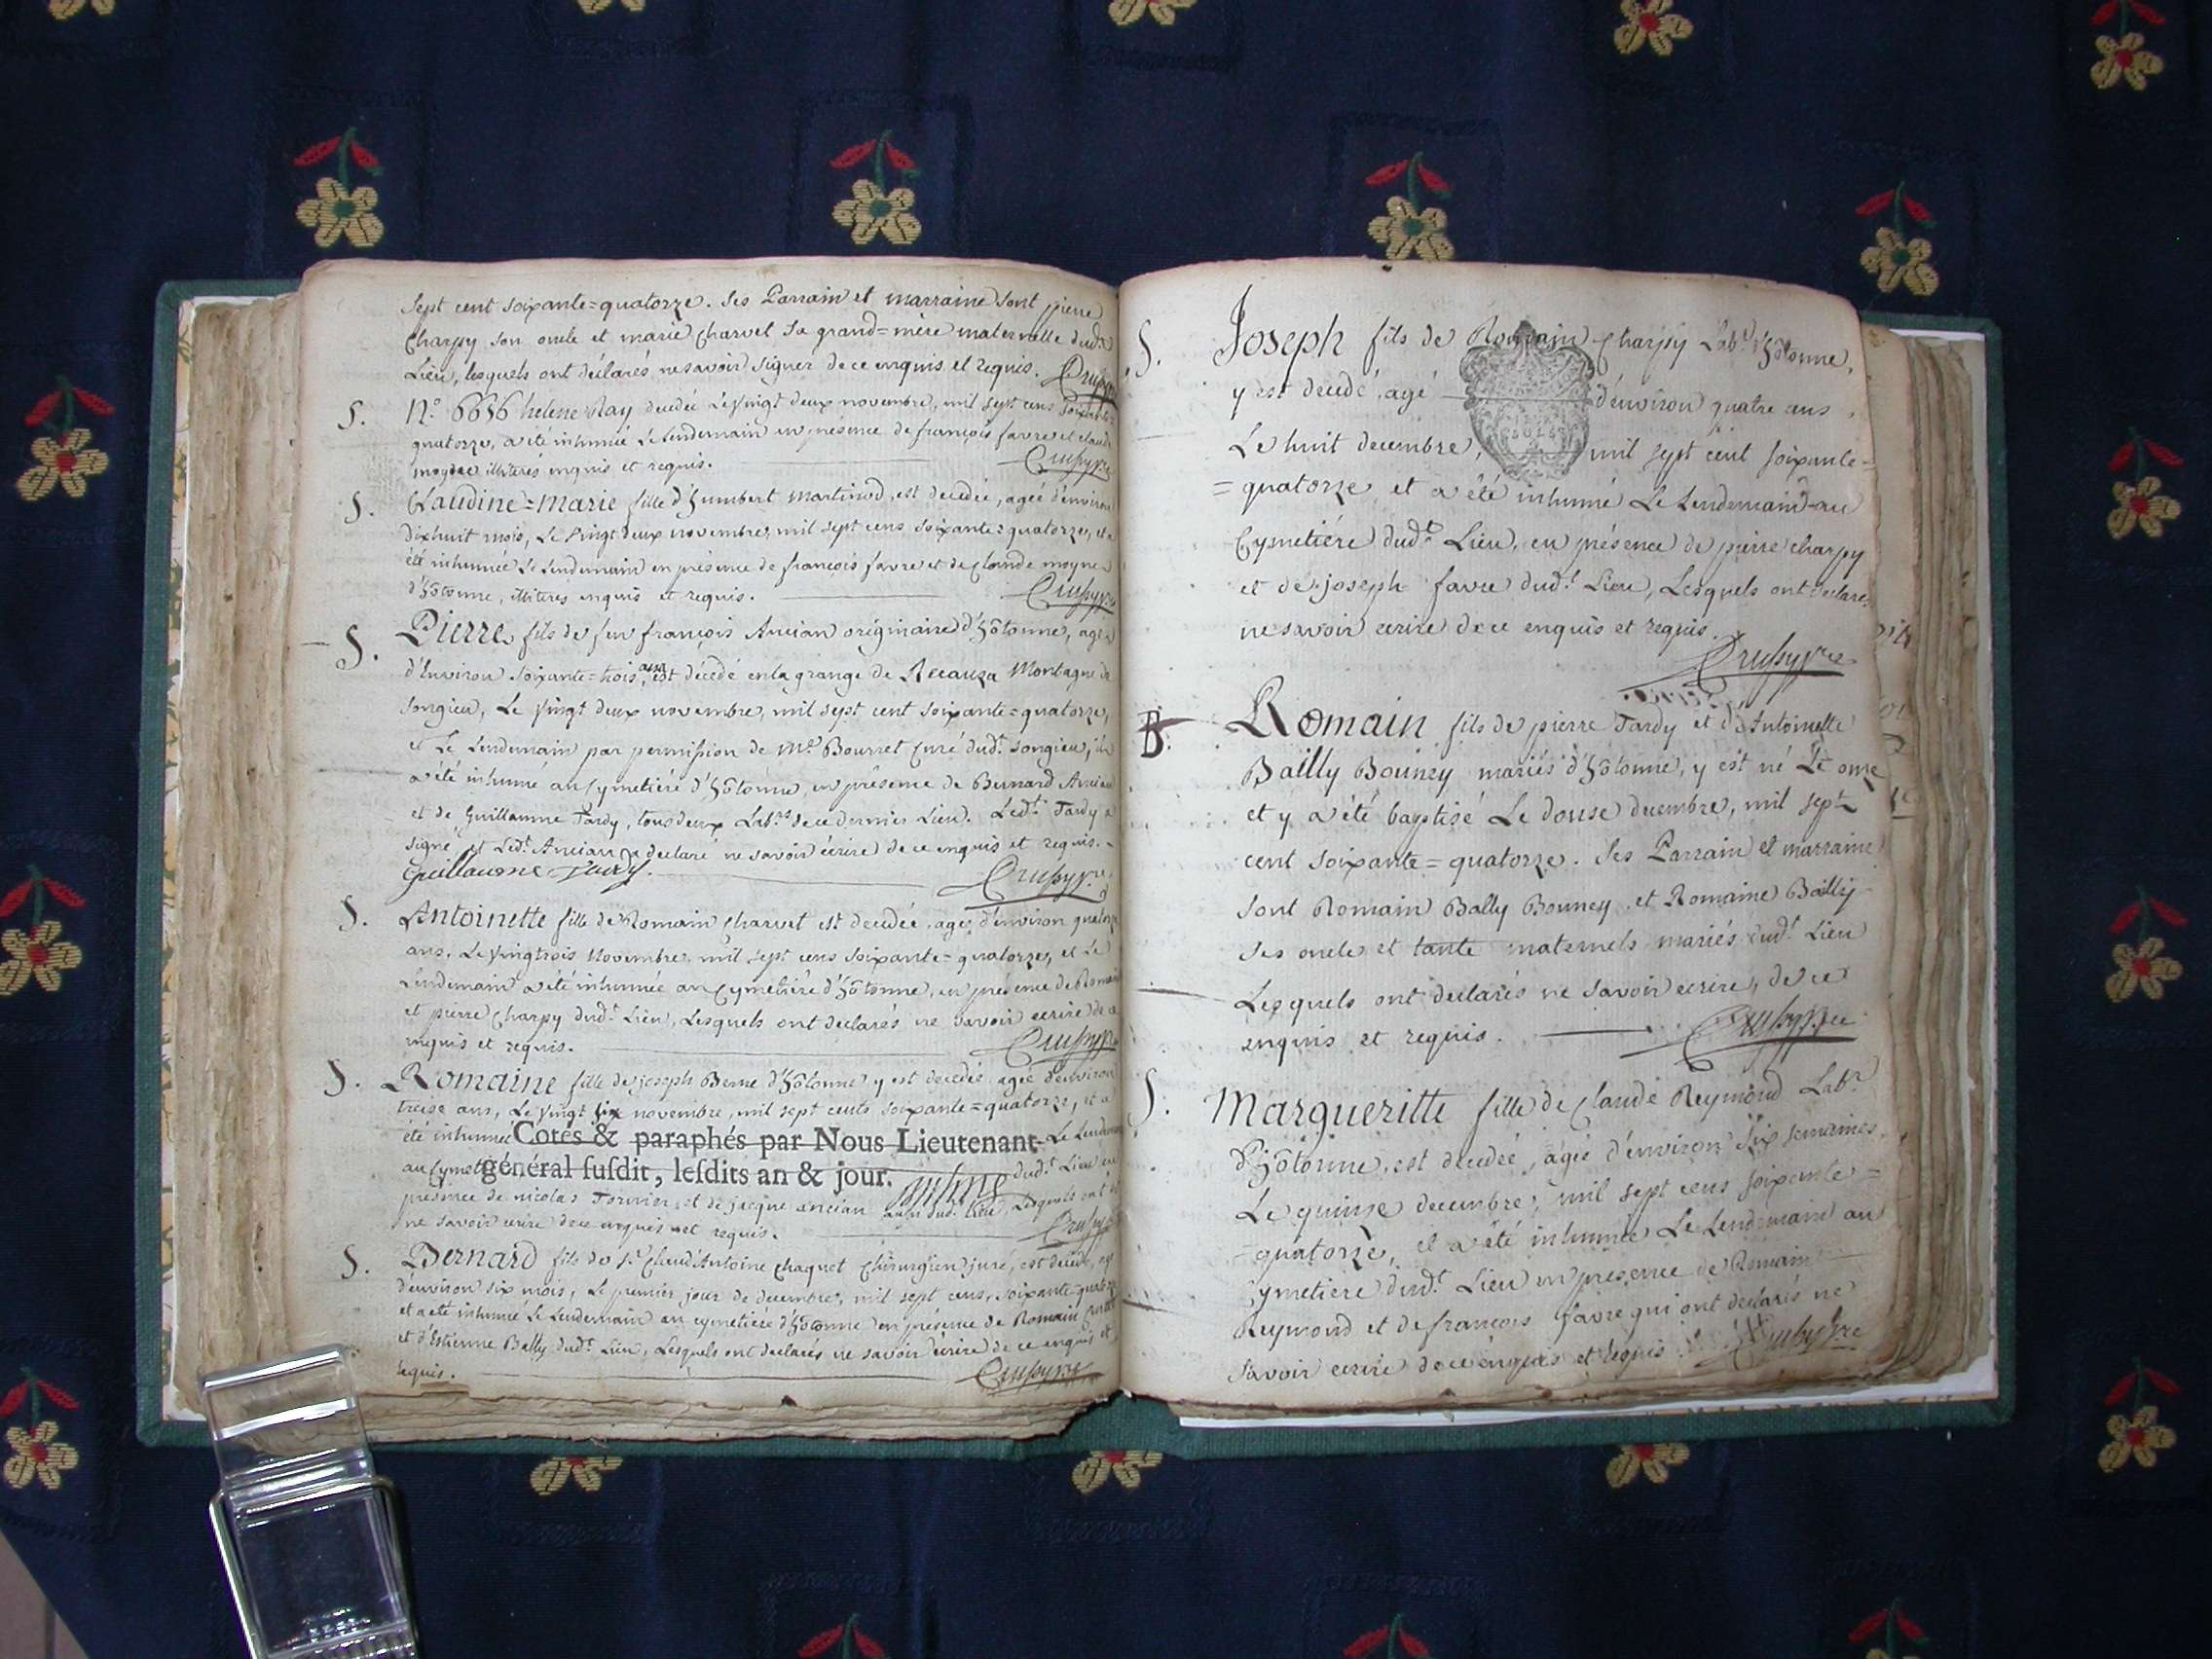 Sept cent soixante=quatorze. Ses Parrain et marraine sont pierre
Charpy son oncle et marie Charvet sa grand=mère maternelle dud.t
Lieu, lesquels ont déclarés ne savoir signer de ce enquis et requis.
S. N.o 6656 helene Ray decedée Le vingt deux novembre, mil sept cens soixante
quatorze, a été inhumée Le Lendemain en présence de françois favre et claude
moyne illiterés enquis et requis.
S. Claudine=Marie fille d'humbert Martinod, est decedée, agée d'environ
dixhuit mois, Le vingt deux novembre, mil sept cens soixante=quatorze, et a
été inhumée Le Lendemain en présence de françois favre et de claude moyne
d'hôtonne, illiteres enquis et requis.
S. Pierre fils de feu françois Ancian originaire d'hôtonne, agé
d'Environ soixante=trois ans est décédé en la grange de Recauza Montagne de
Songieu, Le vingt deux novembre, mil sept cent soixante=quatorze,
et Le Lendemain par permission de M.re Bourret Curé dud.t songieu, il
a été inhumé au Cymetiéré d'hôtonne, en présence de Bernard Ancian
et de Guillaume Tardy, tous deux Lab.rs de ce dernier Lieu. Led.t Tardy a
signé et Led.t Ancian a declaré ne savoir écrire de ce enquis et requis.
Guillaume Tardy.
S. Antoinette fille de Romain Charvet est decedée, agée d'environ quatorze
ans, Le vingtrois Novembre, mil sept cens soixante=quatorze, et Le
Lendemain a été inhumée au Cymetiére d'hôtonne, en présence de Romain
et pierre Charpy dud.t Lieu, Lesquels ont declarés ne savoir ecrire de ce
enquis et requis.
S. Romaine fille de joseph Berne d'hôtonne y est decedée agée d'environ
treise ans, Le vingt six novembre, mil sept cents soixante=quatorze, et a
été inhumée Cotés & paraphés par Nous Lieutenant- Le Lendemain
au Cymet général susdit, lesdits an & jour. dud.t Lieu en
présence de nicolas Tornier, et de jacque ancian aussi dud.t Lieu, Lesquels ont
ne savoir ecrire de ce enquis et requis.
S. Bernard fils de S.r Claud Antoine Chaquet Chirurgien juré, est decedé, agé
d'environ six mois, Le premier jour de decembre, mil sept cens, soixante quatorze
et a eté inhumé Le Lendemain au cymetiére d'hôtonne en présence de Romain
et d'Estienne Bally dud.t Lieu, Lesquels ont declarés ne savoir écrire de ce enquis et
requis.
S. Joseph fils de Romain Charpy Lab.r d'hôtonne,
y est decedé, agé d'environ quatre ans,
Le huit decembre, mil sept cent soixante=
=quatorze et a été inhumé Le Lendemain au
Cymetiére dud.t Lieu, en présence de pierre charpy
et de joseph favre dud.t Lieu, Lesquels ont declarés
ne savoir ecrire de ce enquis et requis.
B. Romain fils de pierre Tardy et d'Antoinette
Bailly Bouney mariés d'hôtonne, y est né Le onze
et y a été baptisé Le douse decembre, mil sept
cent soixante=quatorze. Ses Parrain et marraine
sont Romain Bally Bouney et Romaine Bailly
ses oncle et tante maternels mariés dud.t Lieu
Lesquels ont declarés ne savoir ecrire, de ce
enquis et requis.
S. Margueritte fille de Claude Reymond Lab.r
d'hôtonne, est decedée, agée d'environ six semaines,
Le quinse decembre, mil sept cens soixante=
=quatorze, et a été inhumée Le Lendemain au
Cymetiére dud.t Lieu en présence de Romain
Reymond et de francois favre qui ont declarés ne
savoir ecrire de ce enquis et requis.